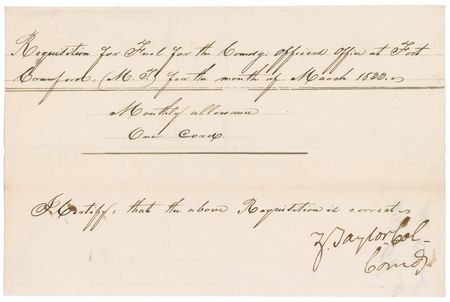 Requisition for Fuel for the Comdg. Officers Office at Fort
Crawford, (M. T.) for the month of March 1833.
Monthly allowance
One Cord.
I Certify, that the above Requisition is correct
Z. Taylor Col.
Comdg